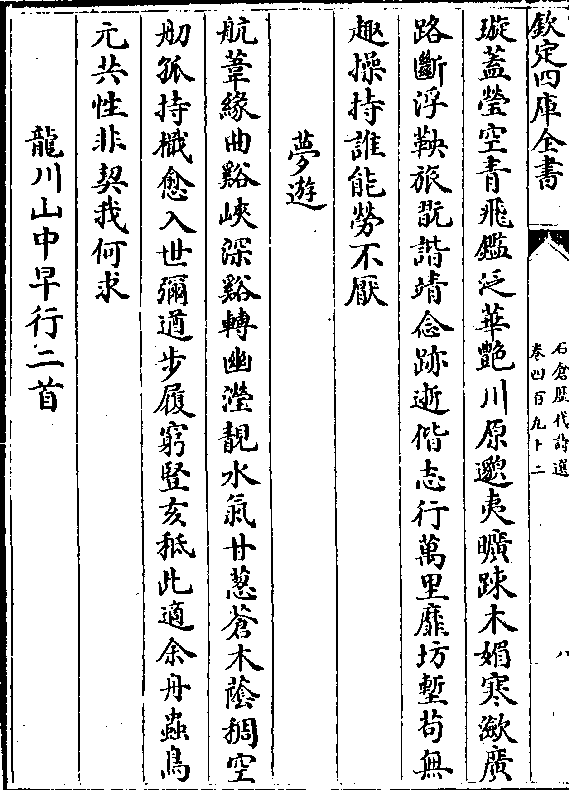 欽定四庫全書
石倉歷代詩選
卷四百九十二
八
璇蓋瑩空青飛鑑泛華艷川原邈夷曠踈木媚寒瀲廣
路斷浮鞅旅翫諧靖念跡逝偕志行萬里靡坊塹茍無
趣操持誰能勞不厭
夢遊
航葦緣曲谿峽深谿轉幽瀅靚水氣甘葱蒼木蔭稠空
舠孤持檝愈入世彌遒步履窮竪亥秖此適余舟蟲鳥
元共性非契我何求
龍川山中早行二首